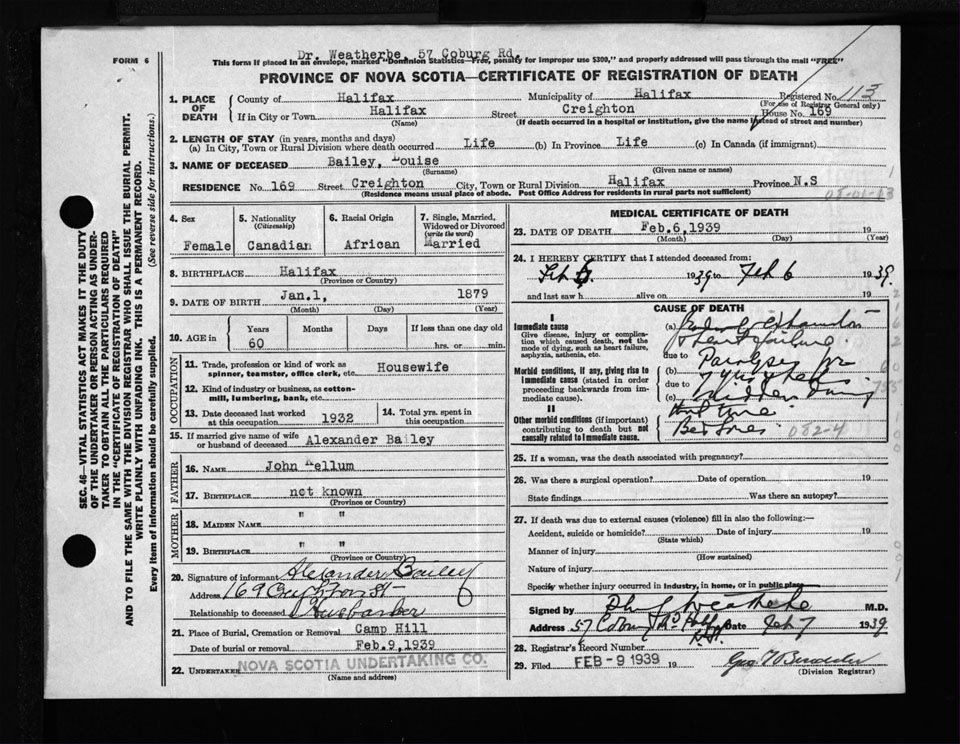 Dr. Weatherbe, 57 Coburg Rd.
FORM 6
This form if placed in an envelope, marked "Dominion Statistics—Free, penalty for improper use $300," and properly addressed will pass through the mail "FREE"
PROVINCE OF NOVA SCOTIA—CERTIFICATE OF REGISTRATION OF DEATH
1. PLACE OF DEATH
County of Halifax Municipality of Halifax Registered No. 113
(For use of Registrar General only)
If in City or Town Halifax Street Creighton House No. 169
(Name) (If death occurred in a hospital or institution, give the name instead of street and number)
2. LENGTH OF STAY (in years, months and days)
(a) In City, Town or Rural Division where death occurred Life (b) In Province Life (c) In Canada (if immigrant)
3. NAME OF DECEASED Bailey, Louise
(Surname) (Given name or names)
RESIDENCE No. 169 Street Creighton City, Town or Rural Division Halifax Province N.S
(Residence means usual place of abode. Post Office Address for residents in rural parts not sufficient)
4. Sex
Female
5. Nationality
(Citizenship)
Canadian
6. Racial Origin
African
7. Single, Married, Widowed or Divorced
(write the word)
Married
8. BIRTHPLACE Halifax
(Province or Country)
9. DATE OF BIRTH Jan.1, 1879
(Month) (Day) (Year)
10. AGE in
Years Months Days If less than one day old
60 hrs. or min.
OCCUPATION
11. Trade, profession or kind of work as spinner, teamster, office clerk, etc. Housewife
12. Kind of industry or business, as cotton-mill, lumbering, bank, etc.
13. Date deceased last worked at this occupation 1932
14. Total yrs. spent in this occupation
15. If married give name of wife or husband of deceased Alexander Bailey
FATHER
16. NAME John Kellum
17. BIRTHPLACE not known
(Province or Country)
MOTHER
18. MAIDEN NAME " "
19. BIRTHPLACE " "
(Province or Country)
20. Signature of informant Alexander Bailey
Address 169 Creighton St
Relationship to deceased
21. Place of Burial, Cremation or Removal Camp Hill
Date of burial or removal Feb.9,1939
22. UNDERTAKER NOVA SCOTIA UNDERTAKING CO.
(Name and address)
MEDICAL CERTIFICATE OF DEATH
23. DATE OF DEATH Feb.6,1939 19
(Month) (Day) (Year)
24. I HEREBY CERTIFY that I attended deceased from:
1939 to Feb 6 1939.
and last saw h alive on 19
CAUSE OF DEATH
I
Immediate cause
Give disease, injury or complication which caused death, not the mode of dying, such as heart failure, asphyxia, asthenia, etc.
(a)
& heart failure
due to
Morbid conditions, if any, giving rise to immediate cause (stated in order proceeding backwards from immediate cause).
(b) Paralysis for
7 yrs
due to
(c) during
that time
II
Other morbid conditions (if important) contributing to death but not causally related to immediate cause.
Bed Sores
082-4
25. If a woman, was the death associated with pregnancy?
26. Was there a surgical operation? Date of operation 19
State findings Was there an autopsy?
27. If death was due to external causes (violence) fill in also the following:—
Accident, suicide or homicide? Date of injury 19
(State which)
Manner of injury
(How sustained)
Nature of injury
Specify whether injury occurred in industry, in home, or in public place
Signed by Weatherbe M.D.
Address 57 Coburg Rd Hfx N.S. Date Feb 7 1939
28. Registrar's Record Number
29. Filed FEB - 9 1939 19
(Division Registrar)
SEC. 46—VITAL STATISTICS ACT MAKES IT THE DUTY
OF THE UNDERTAKER OR PERSON ACTING AS UNDER-
TAKER TO OBTAIN ALL THE PARTICULARS REQUIRED
IN THE "CERTIFICATE OF REGISTRATION OF DEATH"
AND TO FILE THE SAME WITH THE DIVISION REGISTRAR WHO SHALL ISSUE THE BURIAL PERMIT.
WRITE PLAINLY WITH UNFADING INK. THIS IS A PERMANENT RECORD.
Every item of Information should be carefully supplied. (See reverse side for instructions.)